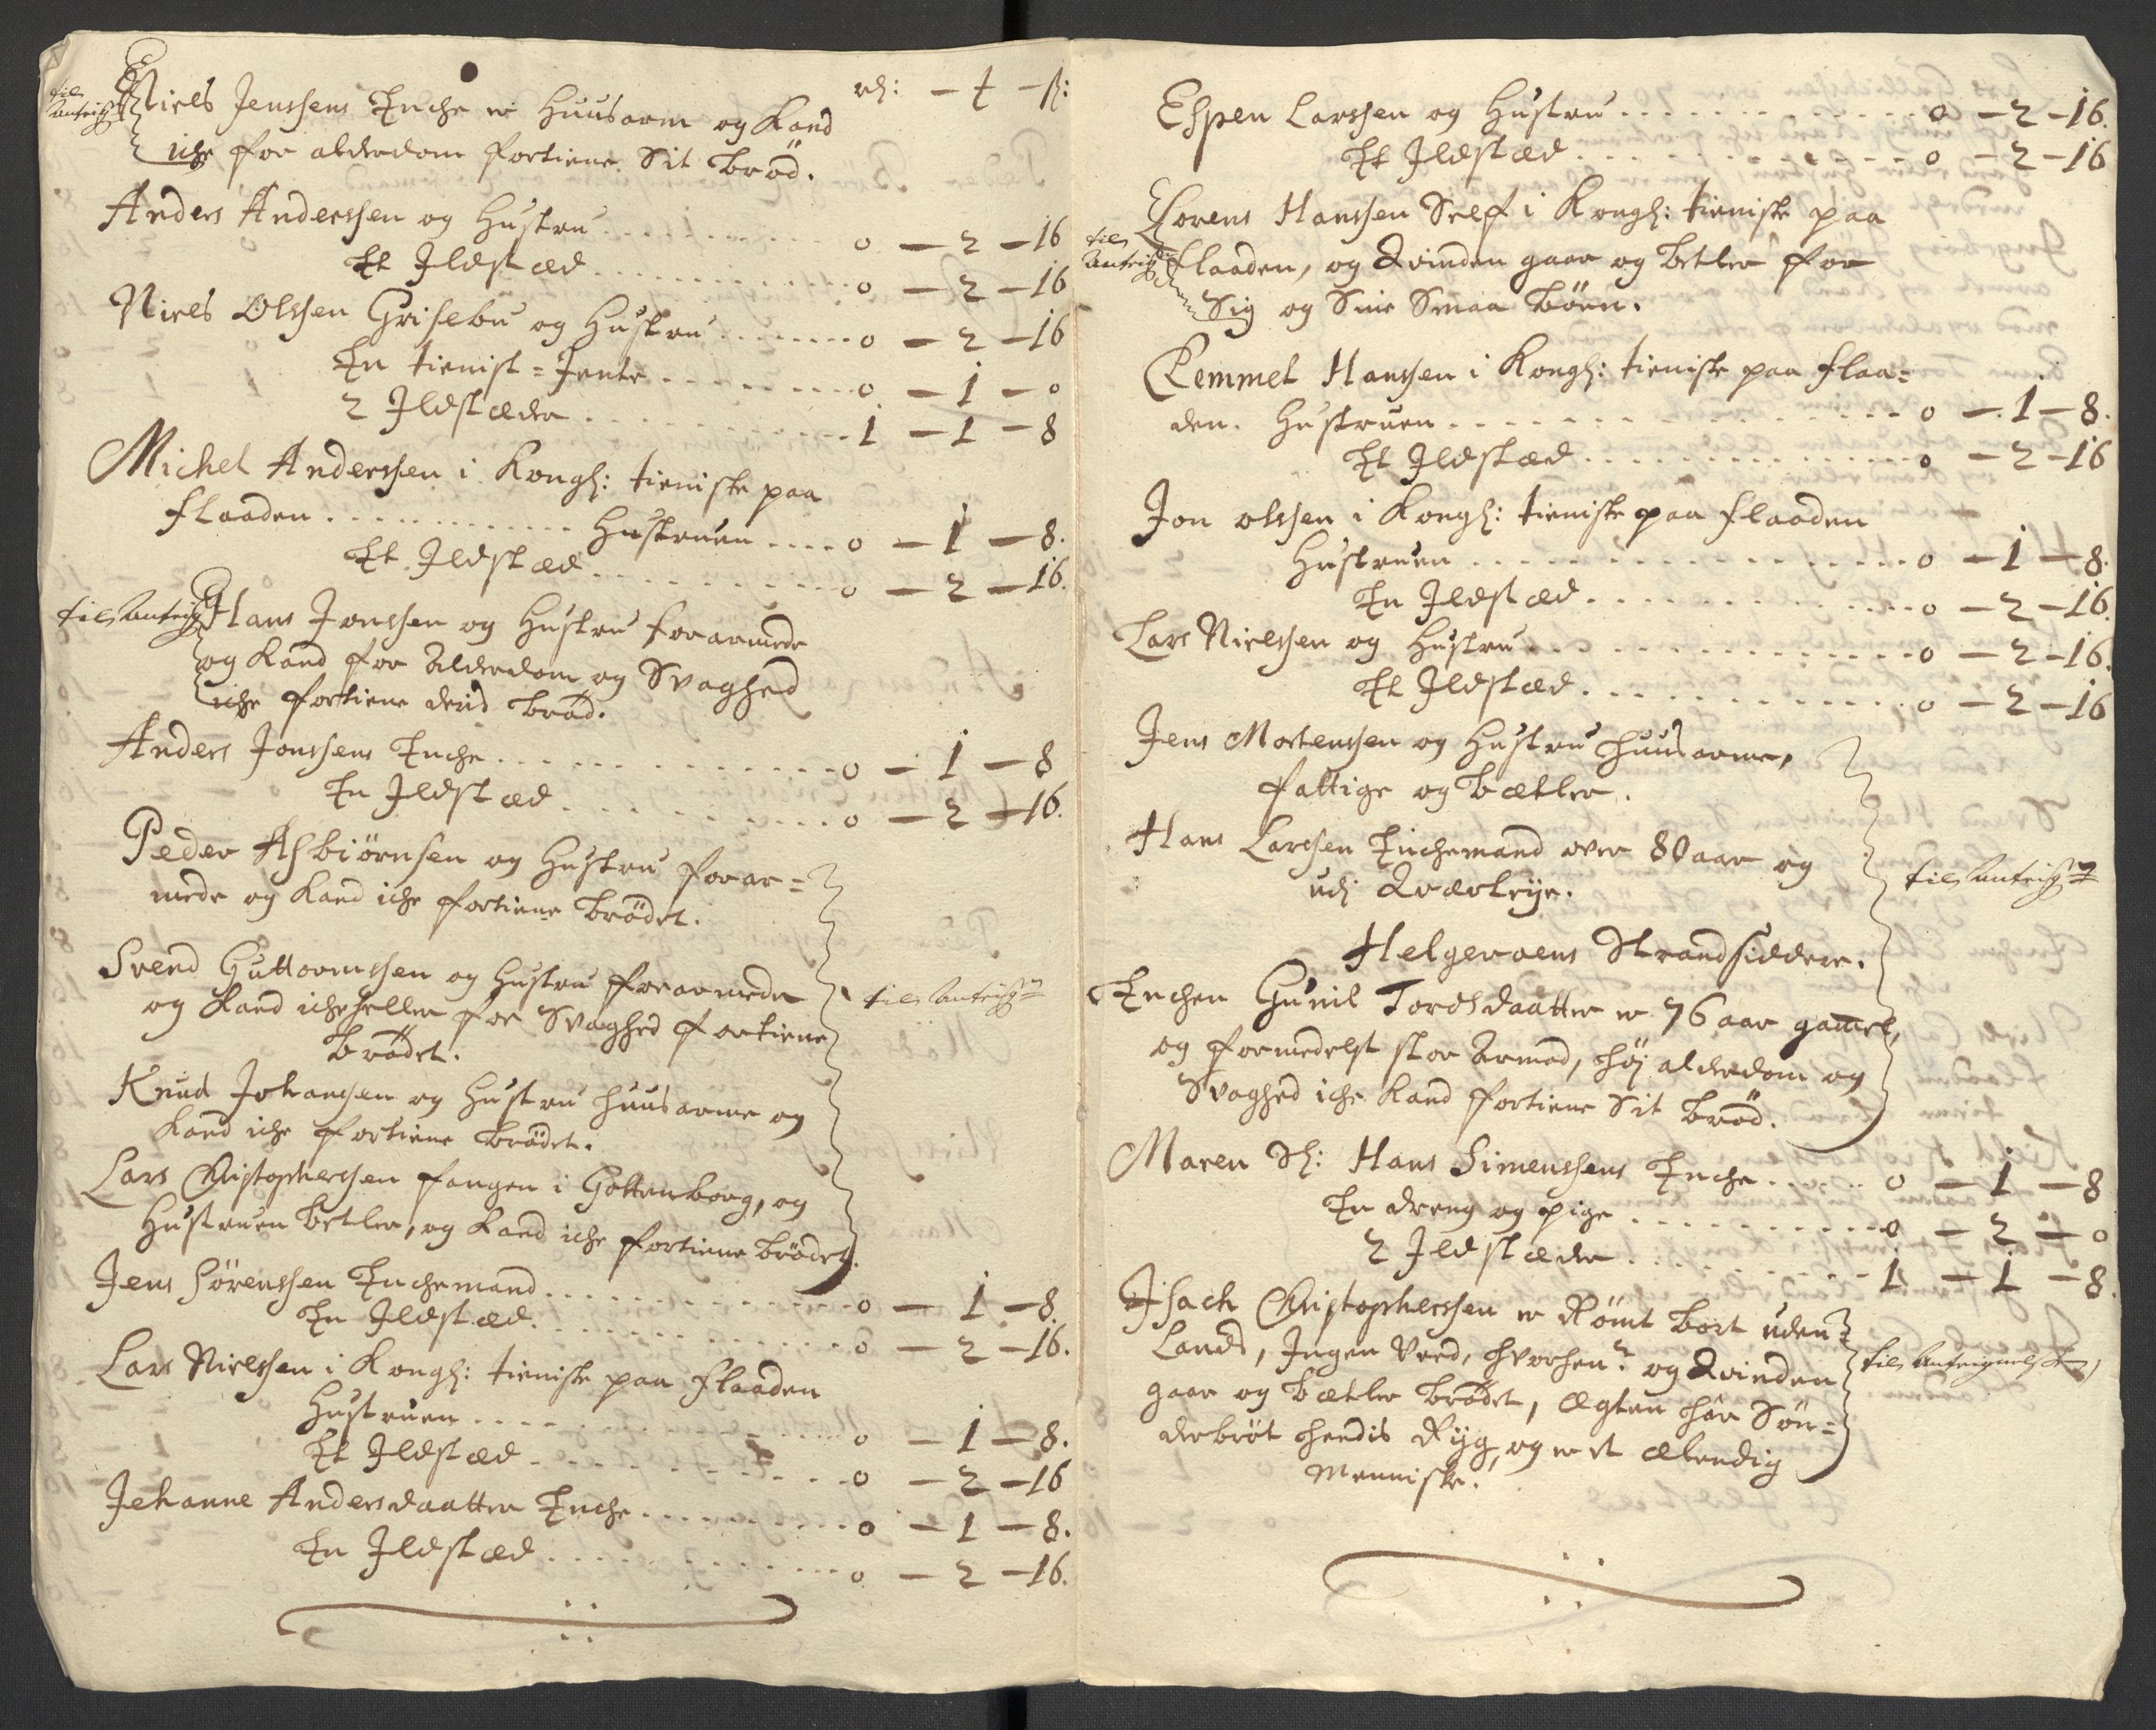 rd: – t – ß:
til
Niels Jenssens Enche er Huusarm og Kand
iche for alderdom fortiene Sit brød.
Anders Anderssen og Hustru . . . . . 0 – 2 – 16
Et Ildstæd . . . . . 0 – 2 – 16
Niels Olssen Grisebu og Hustru . . . . . 0 – 2 – 16
En tienist = Jente . . . . . 0 – 1 – 0
2 Ildstæder . . . . . 1 – 1 – 8
Michel Anderssen i Kongl: tieniste paa
flaaden . . . . . Hustruen . . . . 0 – 1 – 8.
Et Ildstæd . . . . . 0 – 2 – 16.
Hans Jonssen og Hustru forarmede
og Kand for Alderdom og Svaghed
iche fortiene deris brød.
Anders Jonssens Enche . . . . . 0 – 1 – 8
En Ildstæd . . . . . 0 – 2 – 16.
Peder Asbiörnsen og Hustru forar=
mede og Kand iche fortiene brödet.
Svend Guttormssen og Hustru forarmede
og Kand iche heller for Svaghed fortiene
brödet.
Knud Johansen og Hustru huusarme og
Kand iche fortiene brödet.
Lars Christophersen fangen i Gottenborg, og
Hustruen betler, og Kand iche fortiene brödet.
Jens Sörenssen Enchemand . . . . . 0 – 1 – 8.
En Ildstæd . . . . . 0 – 2 – 16.
Lars Nielssen i Kongl: tieniste paa flaaden
Hustruen . . . . . 0 – 1 – 8.
Et Ildstæd . . . . . 0 – 2 – 16
Jehanne Andersdaatter Enche . . . . . 0 – 1 – 8.
En Ildstæd . . . . . 0 – 2 – 16.
Espen Larssen og Hustru . . . . . 0 – 2 – 16.
Et Ildstæd . . . . . 0 – 2 – 16
Lorens Hanssen Self i Kongl: tieniste paa
til
flaaden, og Qvinden gaar og betler for
Sig og Sine Smaa börn.
Clemmet Hanssen i Kongl: tieniste paa flaa=
den. Hustruen . . . . . 0 – 1 – 8.
Et Ildstæd . . . . . 0 – 2 – 16
Jon olssen i Kongl: tieniste paa flaaden
Hustruen . . . . . 0 – 1 – 8.
En Ildstæd . . . . . 0 – 2 – 16.
Lars Nielssen og Hustru . . . . . 0 – 2 – 16.
Et Ildstæd . . . . . 0 – 2 – 16
Jens Mortenssen og Hustru huusarme,
fattige og bætler.
Hans Larssen Enchemand over 80 aar og
udj Qvarterje.
Helgeroens Strandsiddere.
Enchen Gunil Tordsdaatter er 76 aar gamel,
og formedelst stor Armod, høj alderdom og
Svaghed iche Kand fortiene Sit brød.
Maren Sl: Hans Simenssens Enche . . . . . 0 – 1 – 8
En dreng og pige . . . . . 0 – 2 – 0
2 Ildstæder . . . . . 1 – 1 – 8.
Isach Christopherssen er Römt bort uden
Lands, Ingen Veed, hvorhen? og Qvinden
gaar og bætler brödet, Ægten har Sön=
derbröt hendis Ryg, og er et ælendig
Menniske.